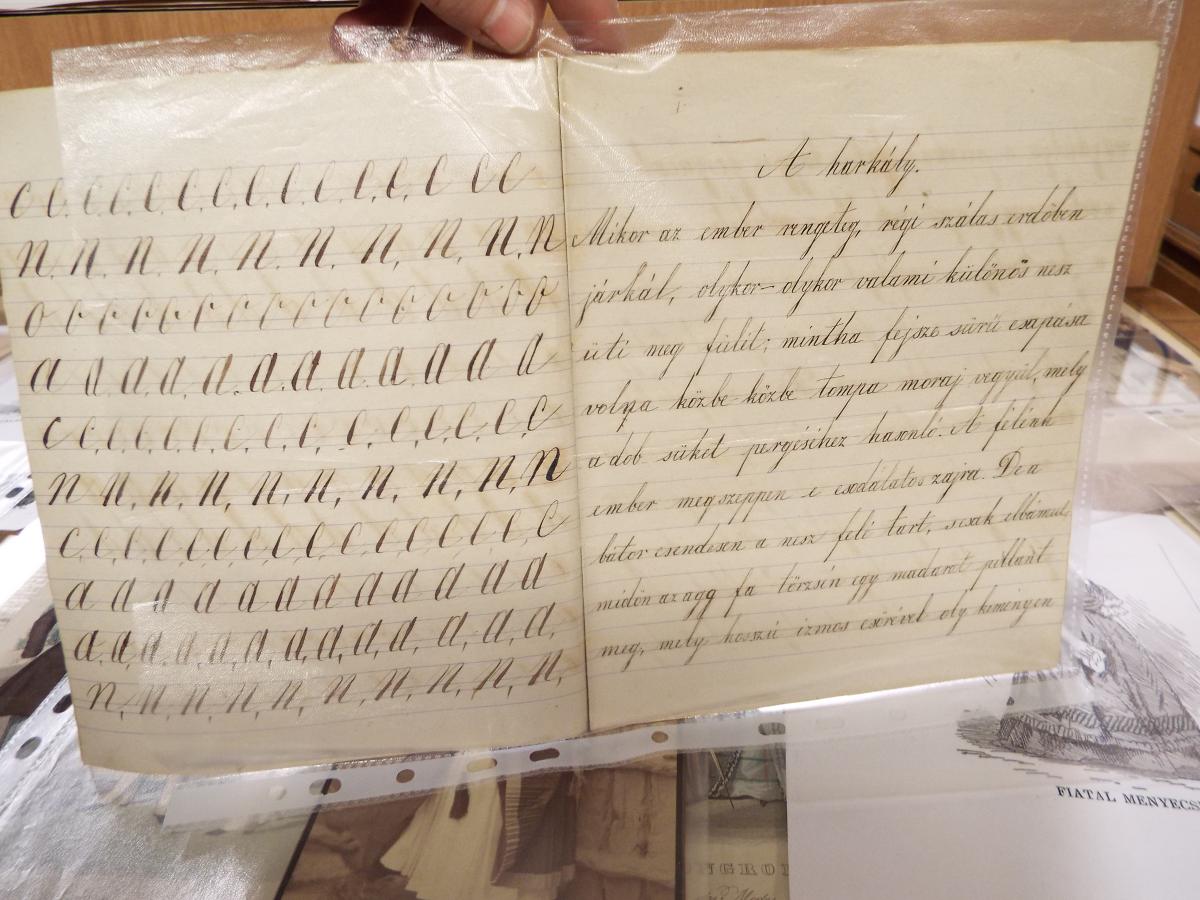 C C C C C C C C C C C C C C
N, N, N, N, N, N, N, N, N, N
O O O O O O O O O O O O O O
a a a a a a a a a a a a
C C C C C C C C C C C C
N N, N, N, N, N, N, N, N, N
C, C, C, C, C, C, C, C, C, C, C, C, C
a a a a a a a a a a a
a, a, a, a, a, a, a, a, a, a, a, a,
N, N, N, N, N, N, N, N, N, N,
A harkály.
Mikor az ember rengeteg, régi szálas erdőben
járkál, olykor-olykor valami különös nesz
üti meg fülét; mintha fejsze sürü csapása
volna közbe-közbe tompa moraj vegyül, mely
a dob süket pergéséhez hasonló. A félénk
ember megszeppen e csodálatos zajra. De a
bátor csendesen a nesz felé tart, s csak elbámul,
midőn az agg fa törzsén egy madarat pillant
meg, mely hosszú izmos csőrével oly keményen
FIATAL MENYECS
NGRO